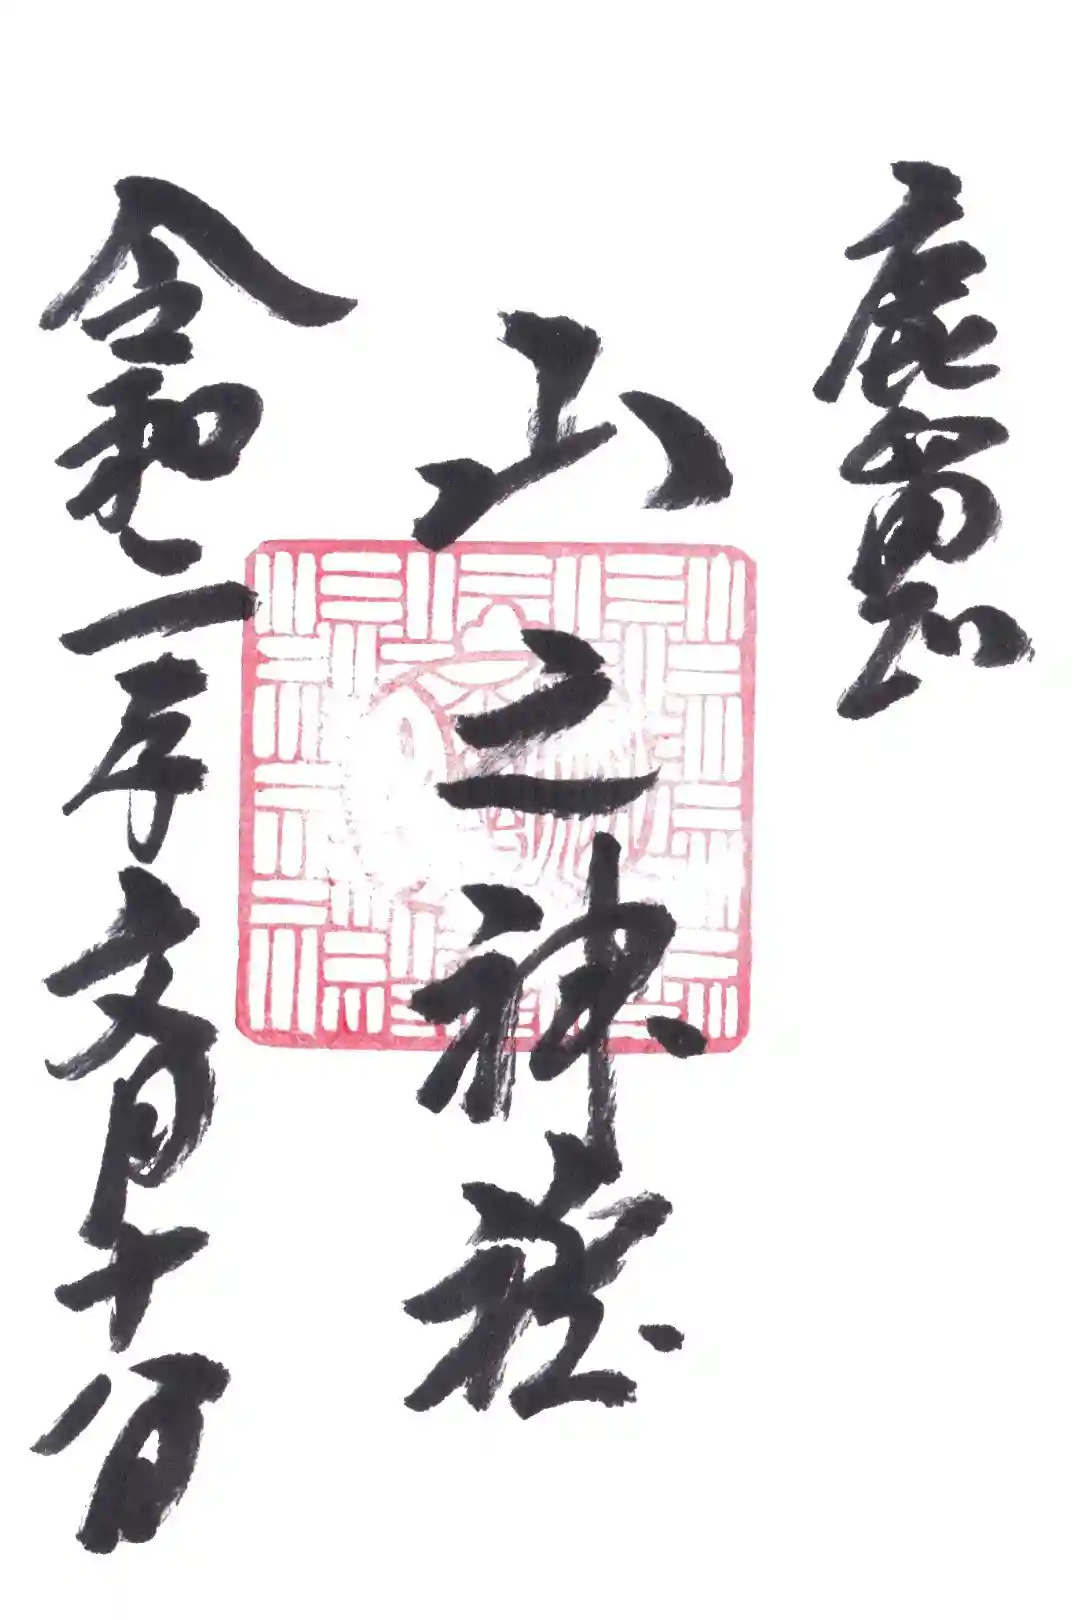 鹿
山之神社
令和二年文月十八日